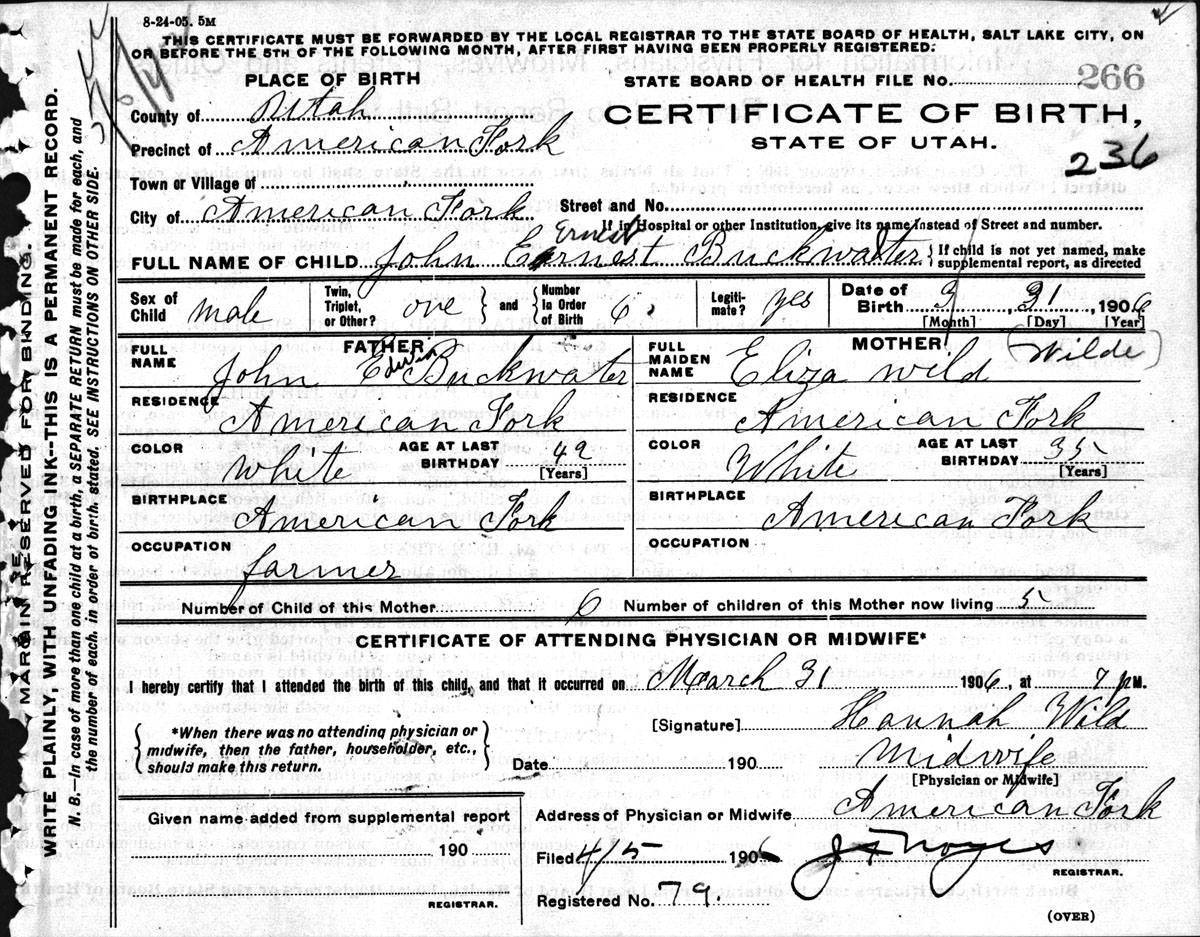 8-24-05. 5M
THIS CERTIFICATE MUST BE FORWARDED BY THE LOCAL REGISTRAR TO THE STATE BOARD OF HEALTH, SALT LAKE CITY, ON
OR BEFORE THE 5TH OF THE FOLLOWING MONTH, AFTER FIRST HAVING BEEN PROPERLY REGISTERED:
PLACE OF BIRTH
STATE BOARD OF HEALTH FILE No. 266
County of Utah
CERTIFICATE OF BIRTH,
Precinct of American Fork
STATE OF UTAH.
236
Town or Village of
City of American Fork Street and No.
If in Hospital or other Institution, give its name instead of Street and number.
Ernest
FULL NAME OF CHILD John Ernest Buckwalter { If child is not yet named, make supplemental report, as directed
Sex of Child Male Twin, Triplet, or Other? one } and { Number in Order of Birth 6. Legitimate? yes Date of Birth 3 31 1906
[Month] [Day] [Year]
FATHER MOTHER (Wilde)
FULL NAME John Edwin Buckwater FULL MAIDEN NAME Eliza Wild
RESIDENCE American Fork RESIDENCE American Fork
COLOR White AGE AT LAST BIRTHDAY 49 [Years] COLOR White AGE AT LAST BIRTHDAY 35 [Years]
BIRTHPLACE American Fork BIRTHPLACE American Fork
OCCUPATION farmer OCCUPATION
Number of Child of this Mother 6 Number of children of this Mother now living 5
CERTIFICATE OF ATTENDING PHYSICIAN OR MIDWIFE*
I hereby certify that I attended the birth of this child, and that it occurred on March 31 1906, at 7 P.M.
{ *When there was no attending physician or midwife, then the father, householder, etc., should make this return. }
[Signature] Hannah Wild
Date 190 Midwife
[Physician or Midwife]
Given name added from supplemental report
190
REGISTRAR.
Address of Physician or Midwife American Fork
Filed 4/5 1906 J F Noyes
REGISTRAR.
Registered No. 79.
(OVER)
MARGIN RESERVED FOR BINDING.
WRITE PLAINLY, WITH UNFADING INK--THIS IS A PERMANENT RECORD.
N. B.—In case of more than one child at a birth, a SEPARATE RETURN must be made for each, and
the number of each, in order of birth, stated. SEE INSTRUCTIONS ON OTHER SIDE.